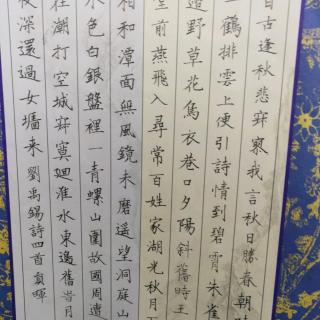 自古逢秋悲寂寥我言秋日勝春朝
一鶴排雲上便引詩情到碧霄朱雀
邊野草花烏衣巷口夕陽斜舊時王
堂前燕飛入尋常百姓家湖光秋月
相和潭面無風鏡未磨遙望洞庭山
水色白銀盤裡一青螺山圍故國周遭
在潮打空城寂寞迴淮水東邊舊旹月
夜深還過女墻来劉禹錫詩四首